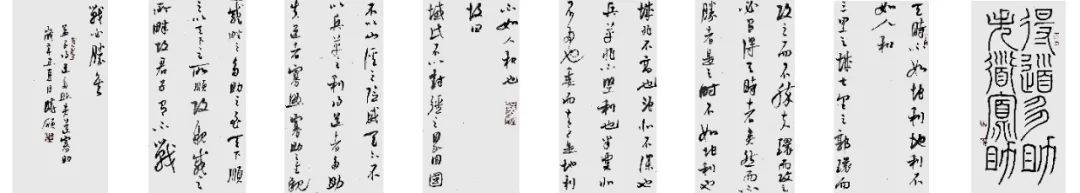 得道多助
失道寡助
天時不如地利地利不
如人和
三里之城七里之郭環而
攻之而不勝夫環而攻之
必有得天時者矣然而不
勝者是天時不如地利也
城非不高也池非不深也
兵革非不堅利也米粟非
不多也委而去之是地利
不如人和也
故曰
域民不以封疆之界固國
不以山溪之險威天下不
以兵革之利得道者多助
失道者寡助寡助之至親
戚畔之多助之至天下順
之以天下之所順攻親戚之
所畔故君子有不戰
戰必勝矣
孟子得道多助失道寡助